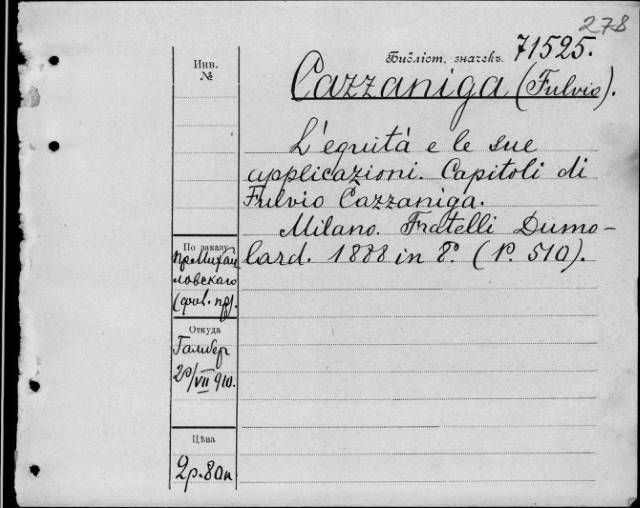 278
Библіот. значекъ. 71525.
Инв.
№
Cazzaniga (Fulvio).
L'equità e le sue
applicazioni. Capitoli di
Fulvio Cazzaniga.
Milano. Fratelli Dumo-
lard. 1888 in 8º. (P. 510).
По заказу
пр. Михай
ловскаго
Откуда
VII 910.
Цѣна
2р. 80к